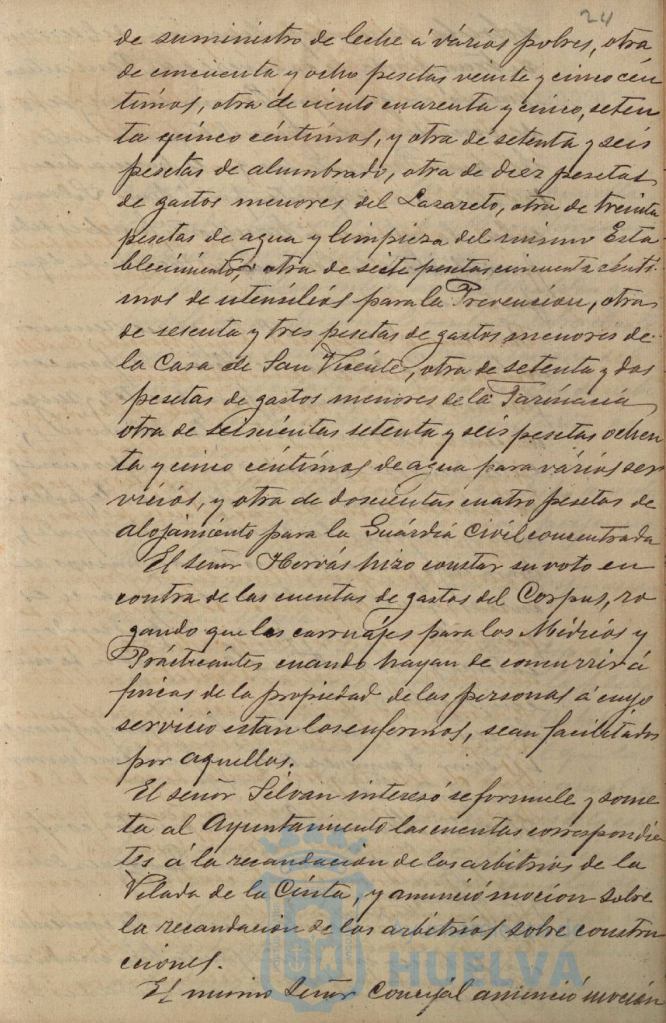 24
de suministro de leche á varios pobres, otra
de cincuenta y ocho pesetas veinte y cinco cén
timos, otra de ciento cuarenta y cinco, seten
ta y cinco céntimos, y otra de setenta y seis
pesetas de alumbrado, otra de diéz pesetas
de gastos menores del Lazareto, otra de treinta
pesetas de agua y limpieza del mismo Esta-
blecimiento, otra de siete pesetas cincuenta cénti-
mos de utensilios para la Prevencion, otra
de sesenta y tres pesetas de gastos menores de
la Casa de San Vicente, otra de setenta y dos
pesetas de gastos menores de la Farmacia,
otra de seiscientas setenta y seis pesetas ochen
ta y cinco céntimos de agua para varios ser
vicios, y otra de doscientas cuatro pesetas de
alojamiento para la Guardia Civil concentrada
El señor Hervás hizo constar su voto en
contra de las cuentas de gastos del Corpus, ro
gando que los carruajes para los Médicos y
Practicantes cuando hayan de concurrir á
fincas de la propiedad de las personas á cuyo
servicio estan los enfermos, sean facilitados
por aquellos.
El señor Silvan interesó se formule y some
ta al Ayuntamiento las cuentas correspondien
tes á la recaudacion de los arbitrios de la
Velada de la Cinta, y anunció mocion sobre
la recaudacion de los arbitrios sobre constru
cciones.
HUELVA
El mismo Señor Concejal anunció mocion